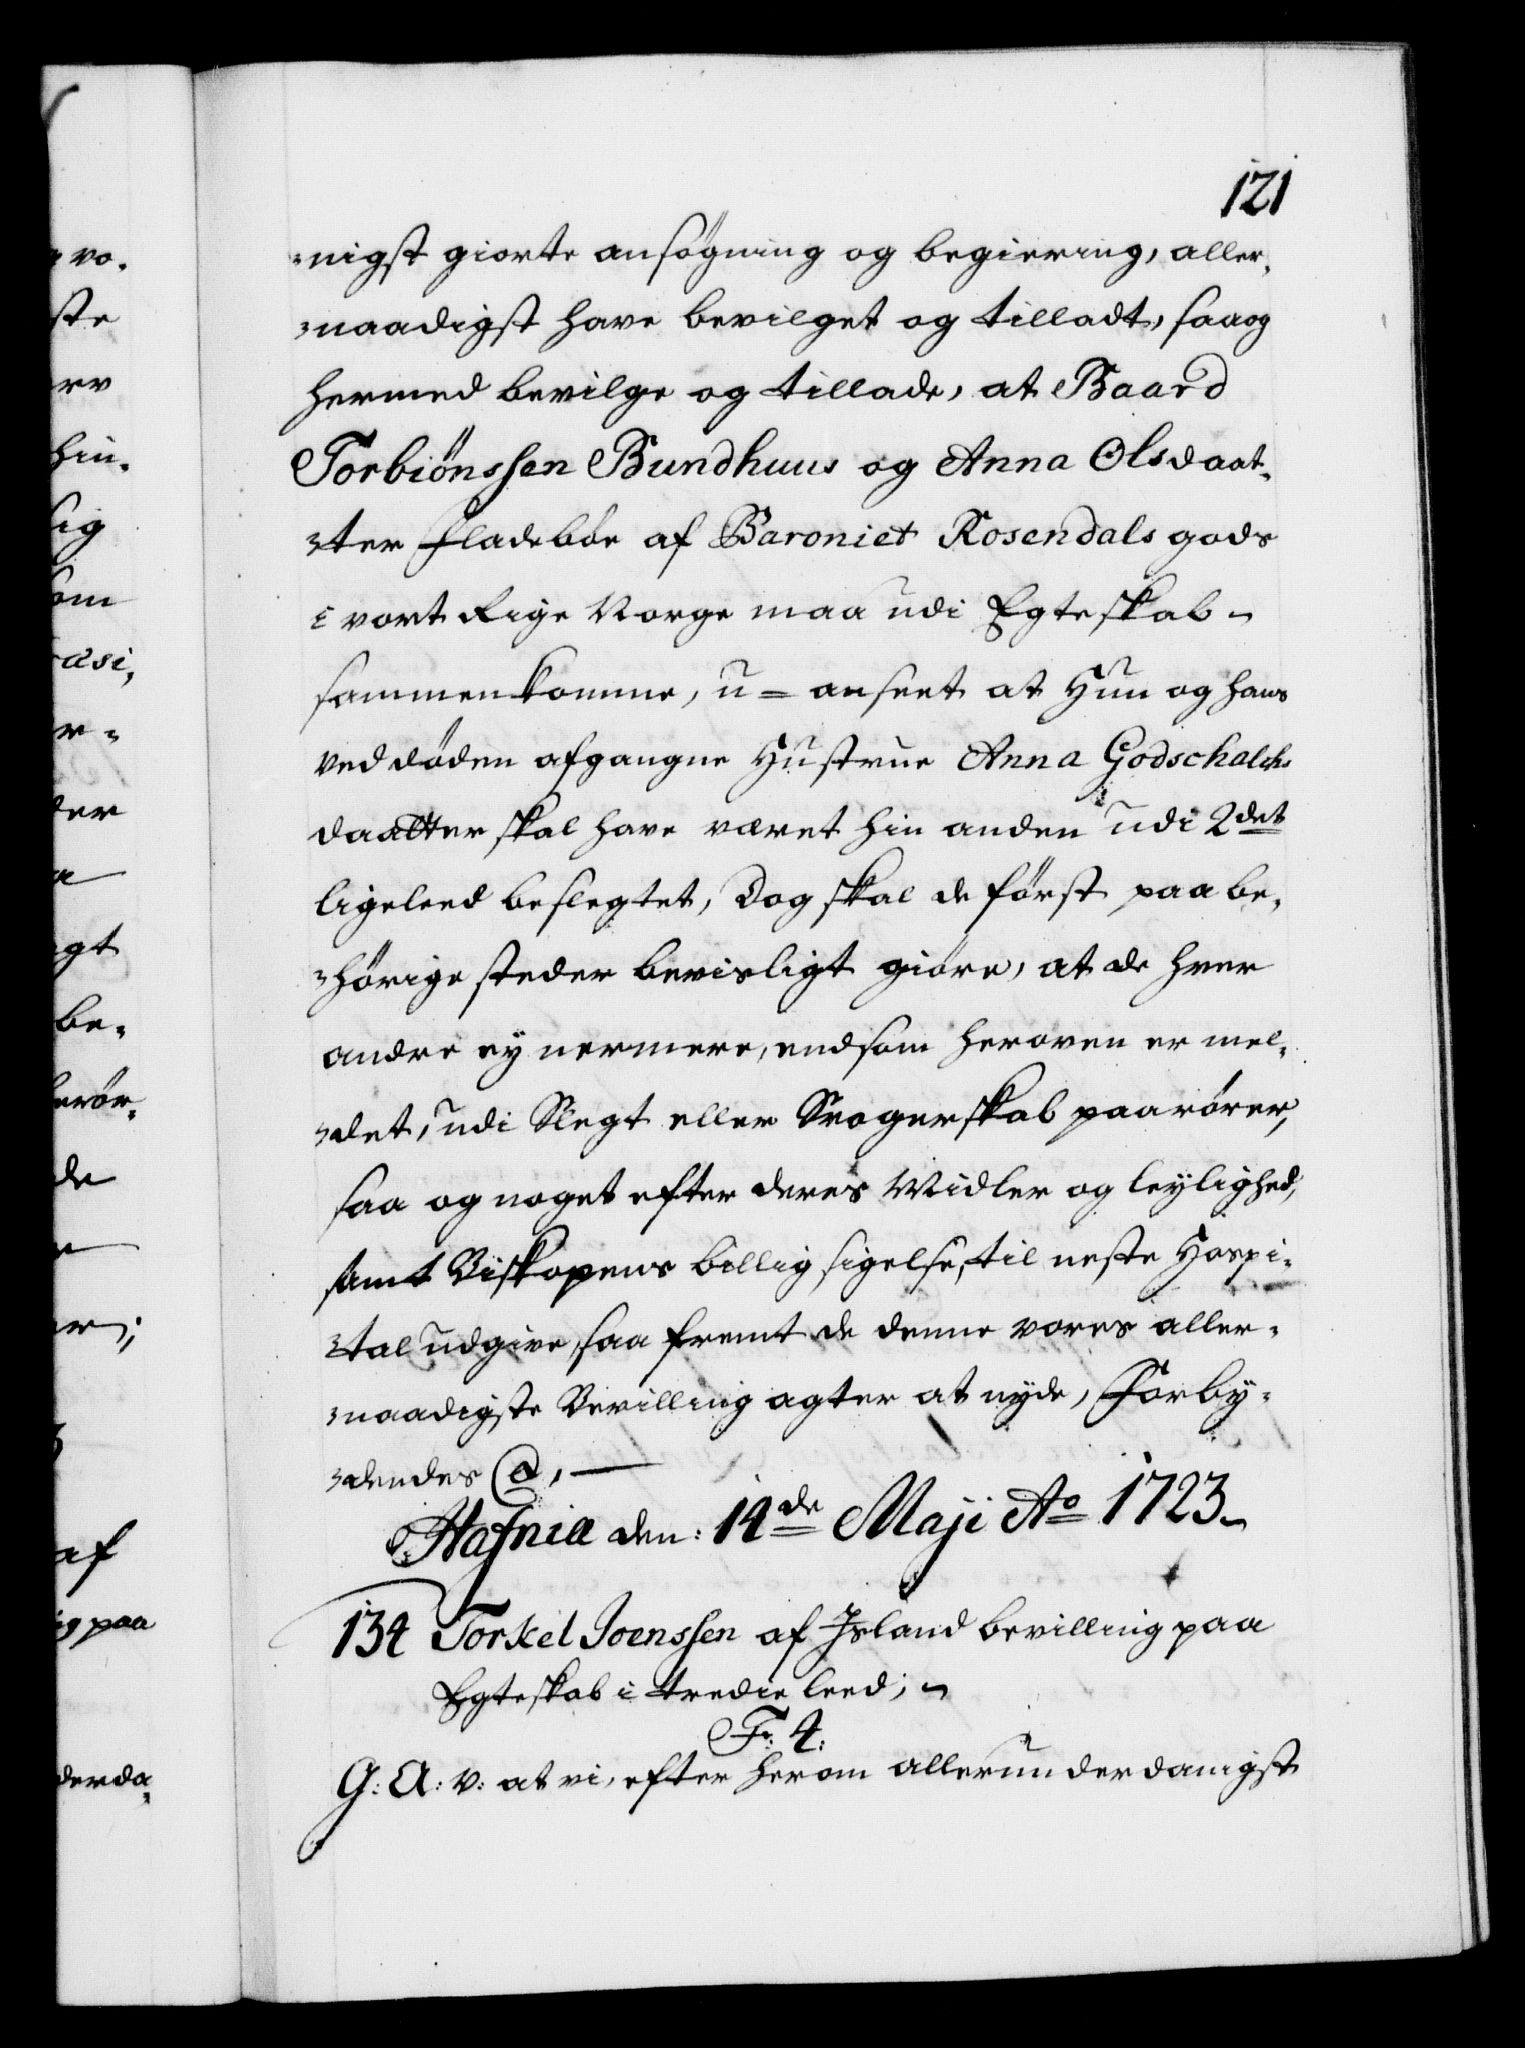 121
-nigst giorte ansögning og begiering, aller-
-naadigst have bevilget og tilladt, saa og
hermed bevilge og tillade, at Baard
Torbiönssen Bundhuus og Anna Olsdaat-
-ter Fladebøe af Baroniet Rosendals gods
i vort Rige Norge maa udi Egteskab
sammenkomme, u-anseet at Hun og hans
ved döden afgangne Hustrue Anna Godschalchs
daatter skal have været hin anden udi 2det
ligeleed beslegtet, Dog skal de först paa be-
-hörige steder bevisligt giöre, at de hver
andre ey nermere, end som heroven er mel-
-det, udi Slegt eller Svogerskab paarörer,
saa og noget efter deres Midler og leylighed,
samt Biskopens billig sigelse, til neste Hospi-
-tal udgive, saa fremt de denne vores aller-
-naadigste Bevilling agter at nyde, Forby-
-dendes @,
Hafniæ den: 14de Maji Ao 1723
134 Torkel Joenssen af Island bevilling paa
Egteskab i tredie leed;
Fr: 4:
G: A: v: at vi, efter herom allerunderdanigst
vo.
ste
hin-
sig
om
ter
agt
be-
erör-
de
af
paa
derda-